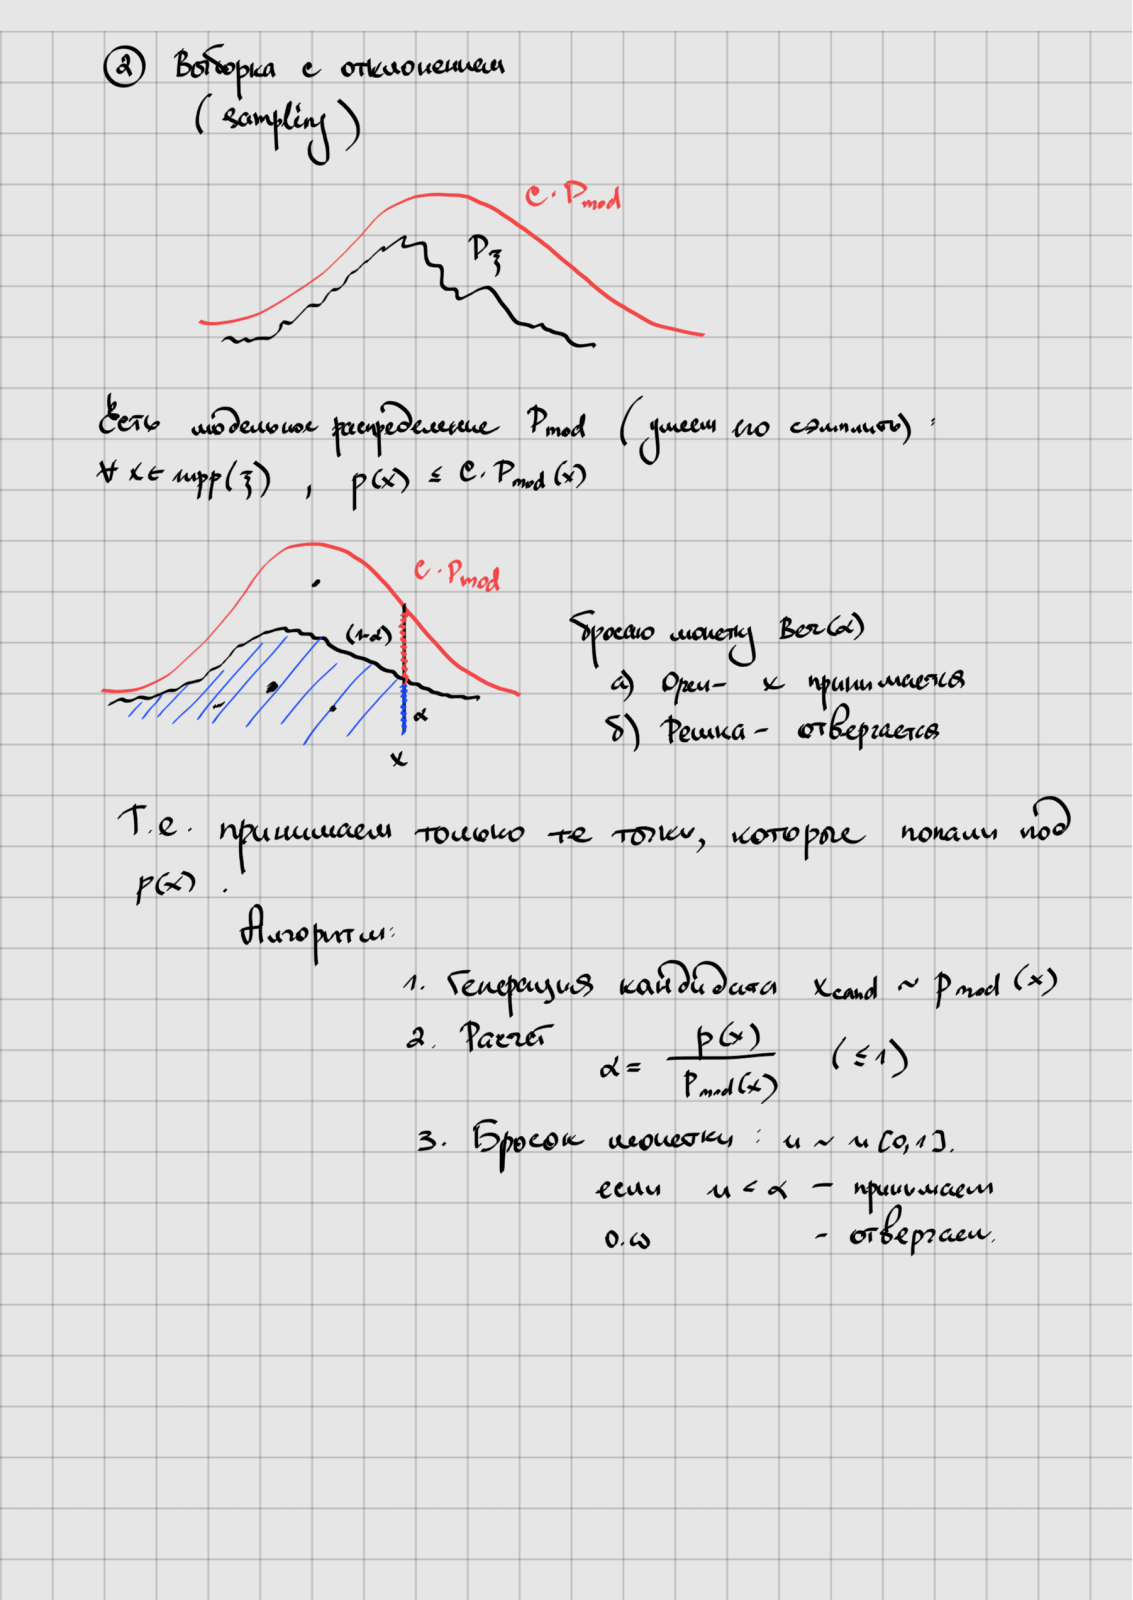 ② Выборка с отклонением
(sampling)
c·P_mod
P_ξ
Есть модельное распределение P_mod (умеем его сэмплить) :
∀ x ∈ supp(ξ) , p(x) ≤ C·P_mod(x)
c·P_mod
(1-α)
α
x
бросаю монетку Ber(α)
а) Орел - x принимается
б) Решка - отвергается
Т.е. принимаем только те точки, которые попали под
p(x) .
Алгоритм:
1. Генерация кандидата x_cand ~ p_mod (x)
2. Расчет
α = p(x) / P_mod(x) (≤ 1)
3. Бросок монетки : u ~ u[0,1].
если u < α - принимаем
o.w - отвергаем.